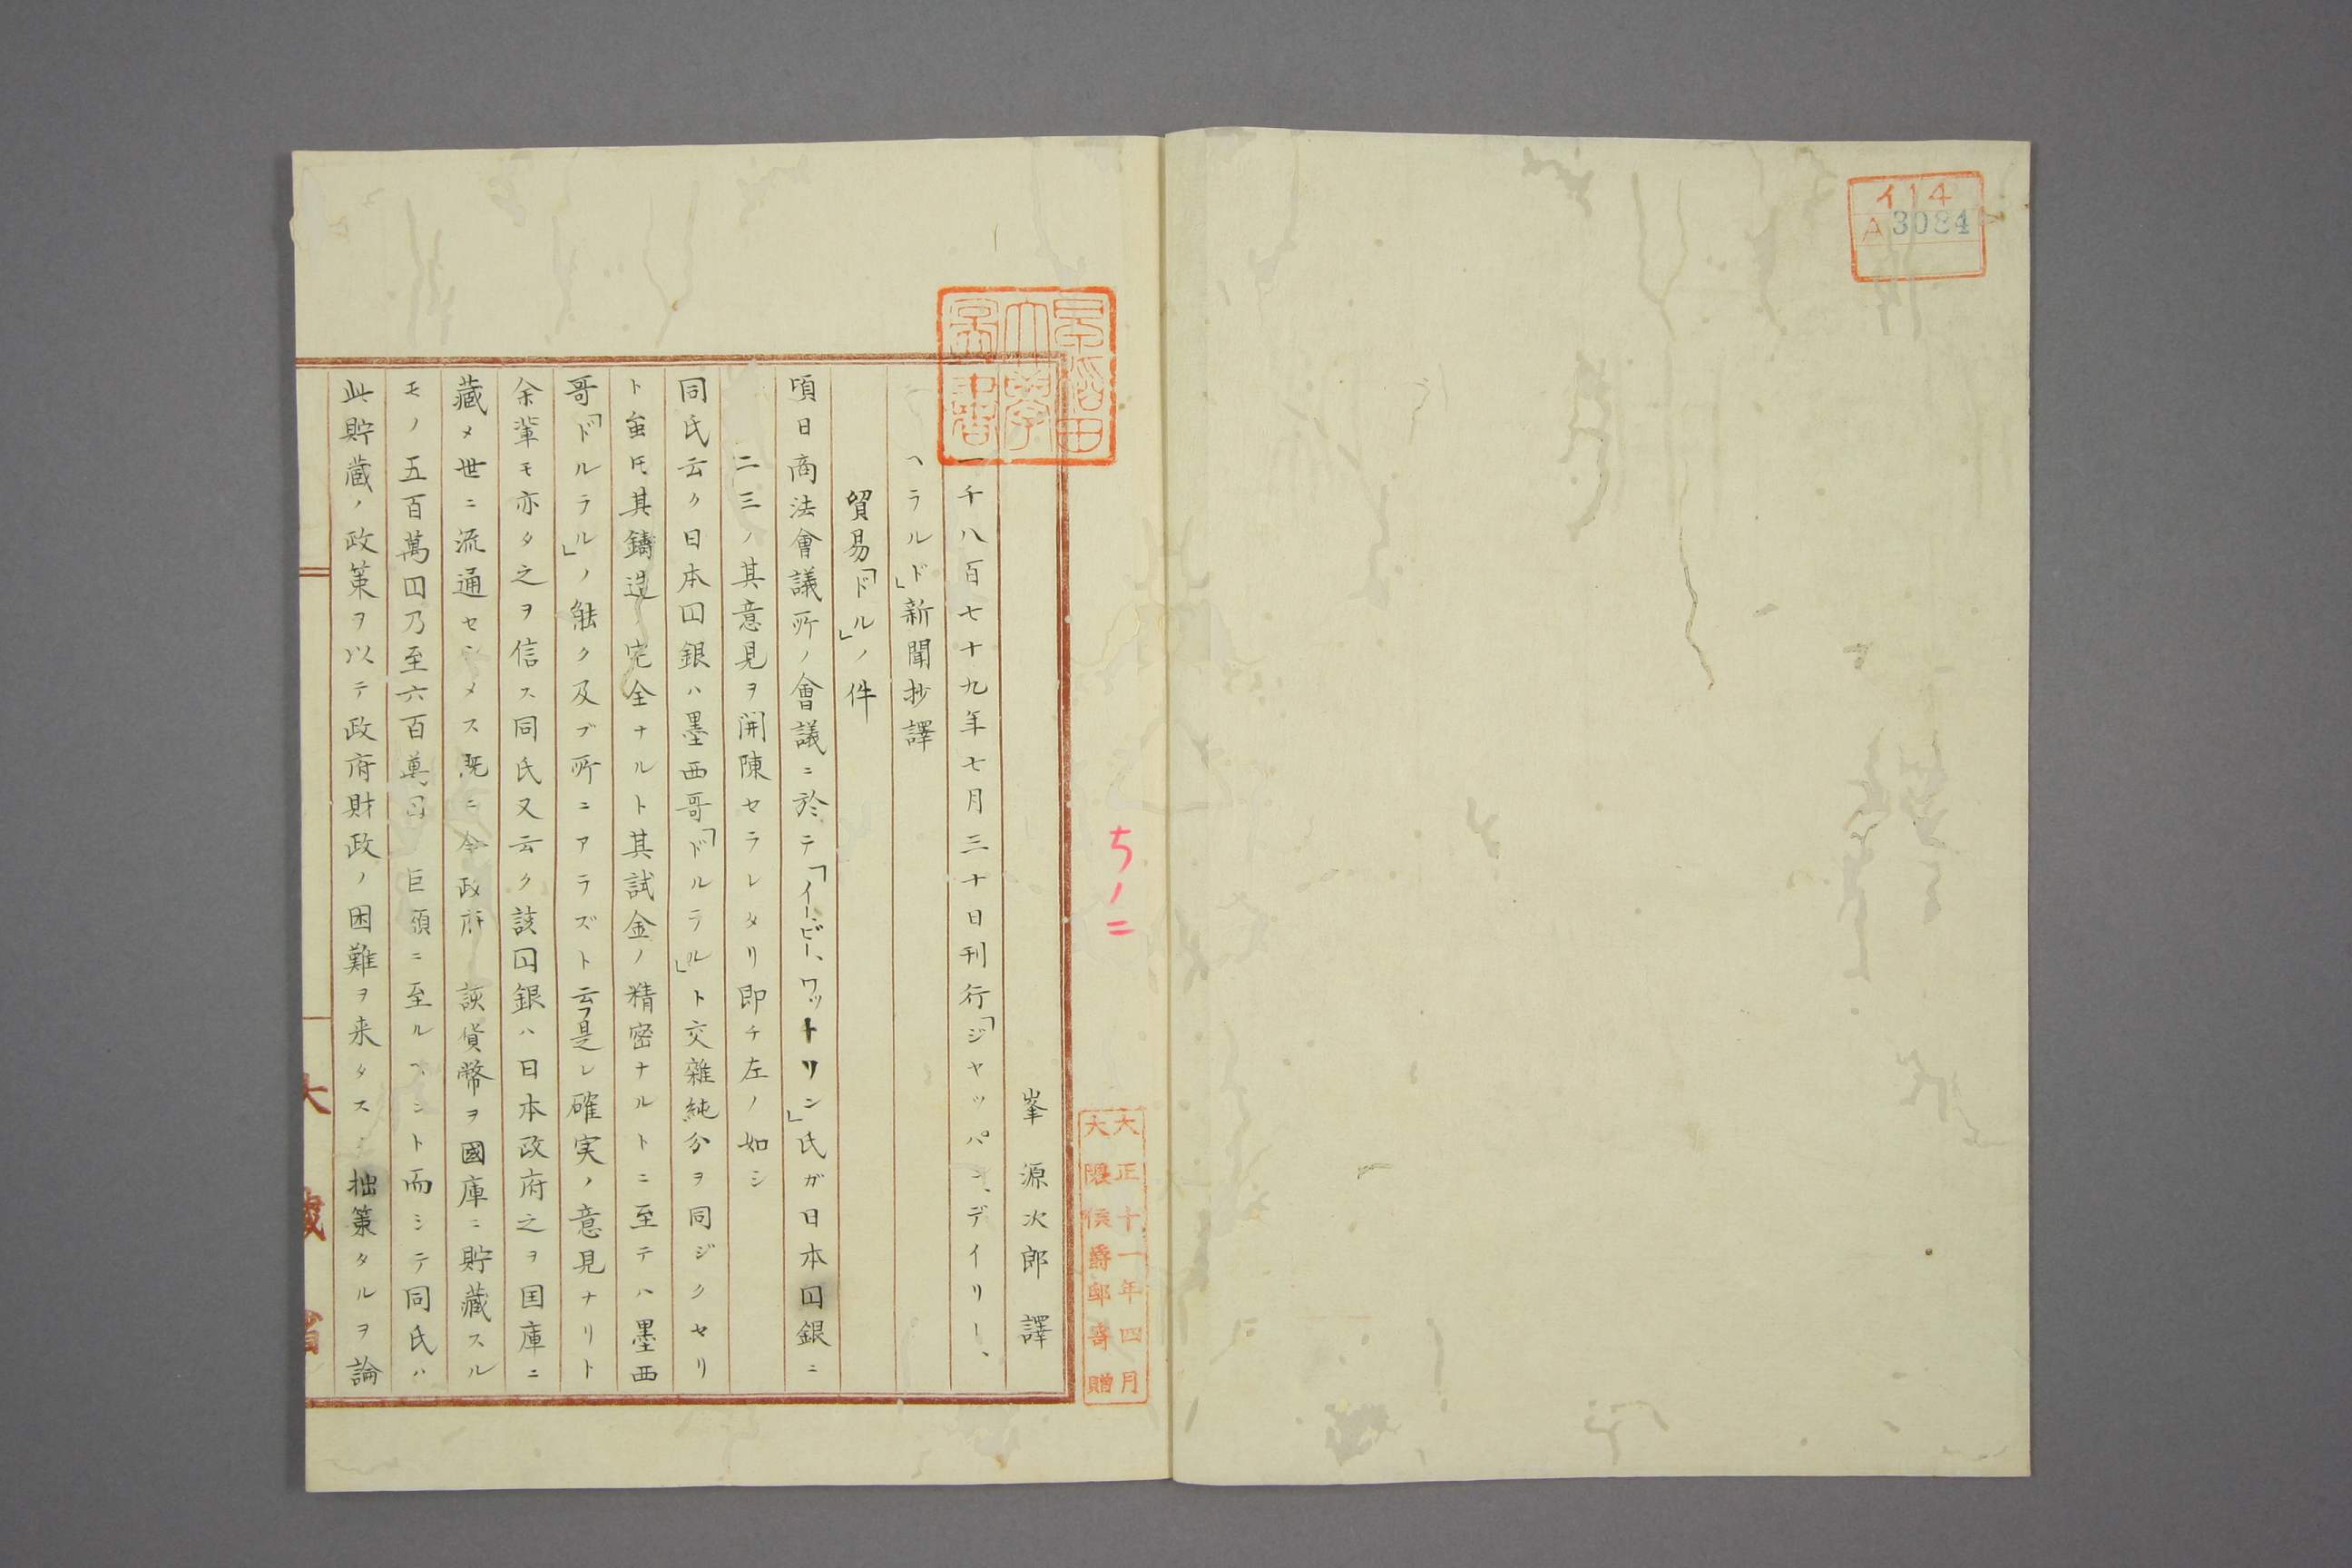 イ14
A3084
早稲田大學圖書
ちノ二
大正十一年四月
大隈侯爵郎寄贈
峯源次郎譯
一千八百七十九年七月三十日刊行「ジャッパン、デイリー、
ヘラルド」新聞抄譯
貿易「ドル」ノ件
頃日商法會議所ノ會議ニ於テ「イー、ビー、ワットリン」氏ガ日本囗銀ニ
二三ノ其意見ヲ開陳セラレタリ即チ左ノ如シ
同氏云ク日本囗銀ハ墨西哥「ドルラル」ト交雜純分ヲ同ジクセリ
ト虽モ其鑄造完全ナルト其試金ノ精密ナルトニ至テハ墨西
哥「ドルラル」ノ能ク及ブ所ニアラズト云フ是レ確実ノ意見ナリト
余輩モ亦タ之ヲ信ス同氏又云ク該囗銀ハ日本政府之ヲ国庫ニ
藏メ世ニ流通センメス既ニ今政府 該貨幣ヲ國庫ニ貯藏スル
モノ五百萬囗乃至六百萬囗 巨額ニ至ルベシト而シテ同氏ハ
此貯蔵ノ政策ヲ以テ政府財政ノ困難ヲ来タス 拙策タルヲ論
大蔵省